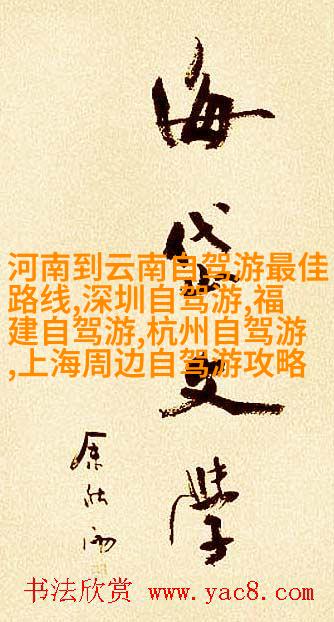 海岱文学
河南到云南自驾游最佳
路线,深圳自驾游,福
建自驾游,杭州自驾游
,上海周边自驾游攻略
书法欣赏 www.yac8.com